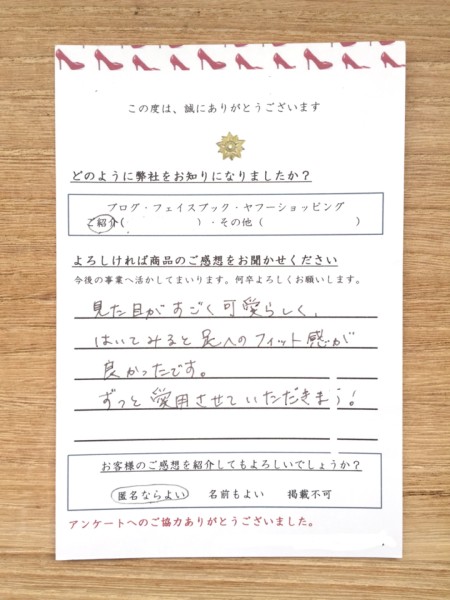 この度は、誠にありがとうございます
どのように弊社をお知りになりましたか？
ブログ・フェイスブック・ヤフーショッピング
ご紹介(　　　　　　)・その他 (　　　　　　　　)
よろしければ商品のご感想をお聞かせください
今後の事業へ活かしてまいります。何卒よろしくお願いします。
見た目がすごく可愛らしく、
はいてみると足へのフィット感が
良かったです。
ずっと愛用させていただきまう!
お客様のご感想を紹介してもよろしいでしょうか？
匿名ならよい　名前もよい　掲載不可
アンケートへのご協力ありがとうございました。